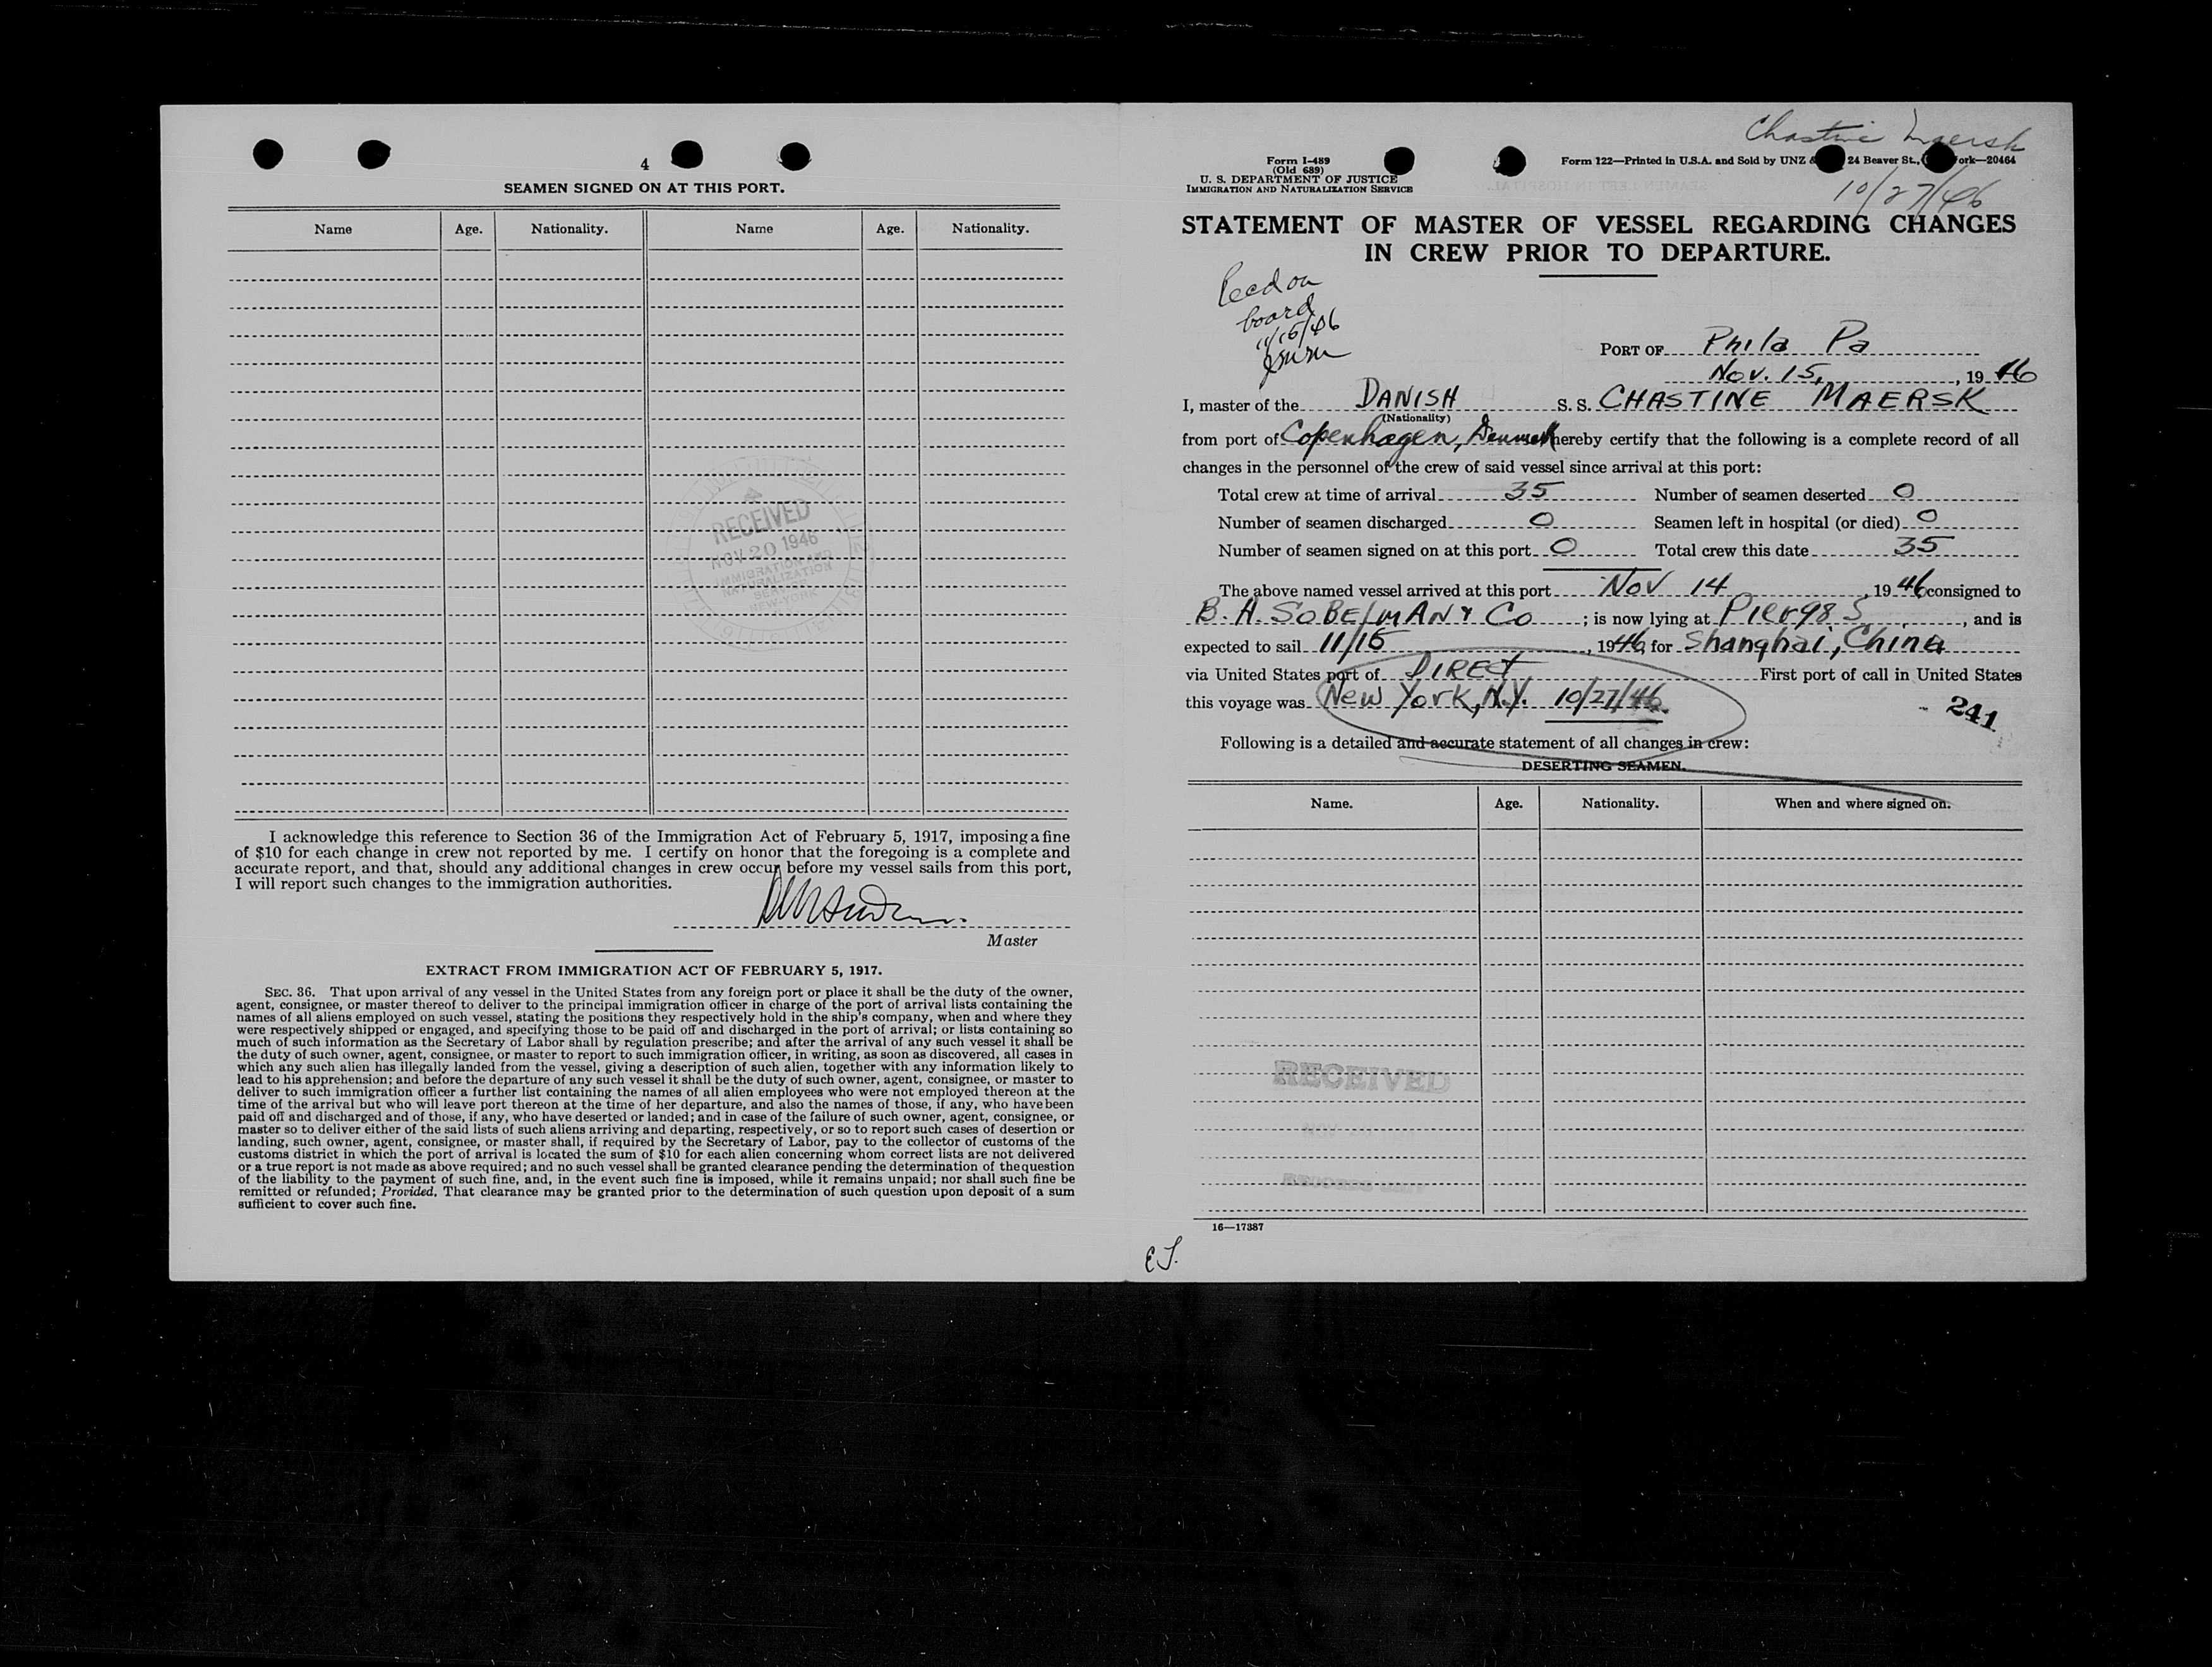 4
SEAMEN SIGNED ON AT THIS PORT.
Name Age. Nationality. Name Age. Nationality.
RECEIVED
NOV 20 1946
IMMIGRATION AND
NATURALIZATION
SERVICE
NEW YORK
I acknowledge this reference to Section 36 of the Immigration Act of February 5, 1917, imposing a fine
of $10 for each change in crew not reported by me. I certify on honor that the foregoing is a complete and
accurate report, and that, should any additional changes in crew occur before my vessel sails from this port,
I will report such changes to the immigration authorities.
Master
EXTRACT FROM IMMIGRATION ACT OF FEBRUARY 5, 1917.
SEC. 36. That upon arrival of any vessel in the United States from any foreign port or place it shall be the duty of the owner,
agent, consignee, or master thereof to deliver to the principal immigration officer in charge of the port of arrival lists containing the
names of all aliens employed on such vessel, stating the positions they respectively hold in the ship's company, when and where they
were respectively shipped or engaged, and specifying those to be paid off and discharged in the port of arrival; or lists containing so
much of such information as the Secretary of Labor shall by regulation prescribe; and after the arrival of any such vessel it shall be
the duty of such owner, agent, consignee, or master to report to such immigration officer, in writing, as soon as discovered, all cases in
which any such alien has illegally landed from the vessel, giving a description of such alien, together with any information likely to
lead to his apprehension; and before the departure of any such vessel it shall be the duty of such owner, agent, consignee, or master to
deliver to such immigration officer a further list containing the names of all alien employees who were not employed thereon at the
time of the arrival but who will leave port thereon at the time of her departure, and also the names of those, if any, who have been
paid off and discharged and of those, if any, who have deserted or landed; and in case of the failure of such owner, agent, consignee, or
master so to deliver either of the said lists of such aliens arriving and departing, respectively, or so to report such cases of desertion or
landing, such owner, agent, consignee, or master shall, if required by the Secretary of Labor, pay to the collector of customs of the
customs district in which the port of arrival is located the sum of $10 for each alien concerning whom correct lists are not delivered
or a true report is not made as above required; and no such vessel shall be granted clearance pending the determination of the question
of the liability to the payment of such fine, and, in the event such fine is imposed, while it remains unpaid; nor shall such fine be
remitted or refunded; Provided, That clearance may be granted prior to the determination of such question upon deposit of a sum
sufficient to cover such fine.
Chastine Maersk
Form I-489
(Old 689)
U. S. DEPARTMENT OF JUSTICE
IMMIGRATION AND NATURALIZATION SERVICE
Form 122—Printed in U.S.A. and Sold by UNZ & 24 Beaver St., ork—20464
10/27/46
STATEMENT OF MASTER OF VESSEL REGARDING CHANGES
IN CREW PRIOR TO DEPARTURE.
Recd on
board
11/15/46
PORT OF Phila Pa
Nov. 15, , 19 46
I, master of the DANISH S. S. CHASTINE MAERSK
(Nationality)
from port of Copenhagen, Denmark hereby certify that the following is a complete record of all
changes in the personnel of the crew of said vessel since arrival at this port:
Total crew at time of arrival 35 Number of seamen deserted 0
Number of seamen discharged 0 Seamen left in hospital (or died) 0
Number of seamen signed on at this port 0 Total crew this date 35
The above named vessel arrived at this port Nov 14 , 19 46 consigned to
B. A. SOBELMAN & Co ; is now lying at Pier 98 S. , and is
expected to sail 11/15 , 19 46, for Shanghai, China
via United States port of DIRECT First port of call in United States
this voyage was New York, N.Y. 10/27/46.
241
Following is a detailed and accurate statement of all changes in crew:
DESERTING SEAMEN.
Name. Age. Nationality. When and where signed on.
RECEIVED
NOV
RECORDS UNIT
16—17387
E.J.